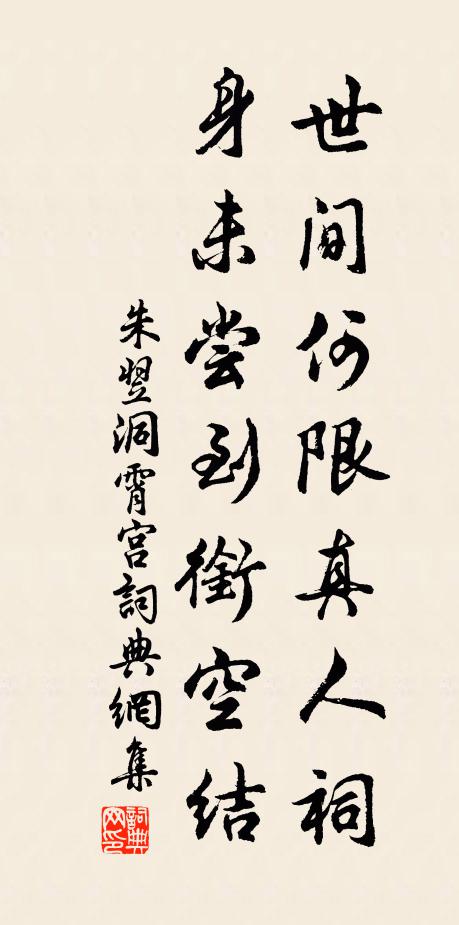 世间何限真人祠
身未尝到衔空结
朱翌洞霄宫词典網集
词典网印